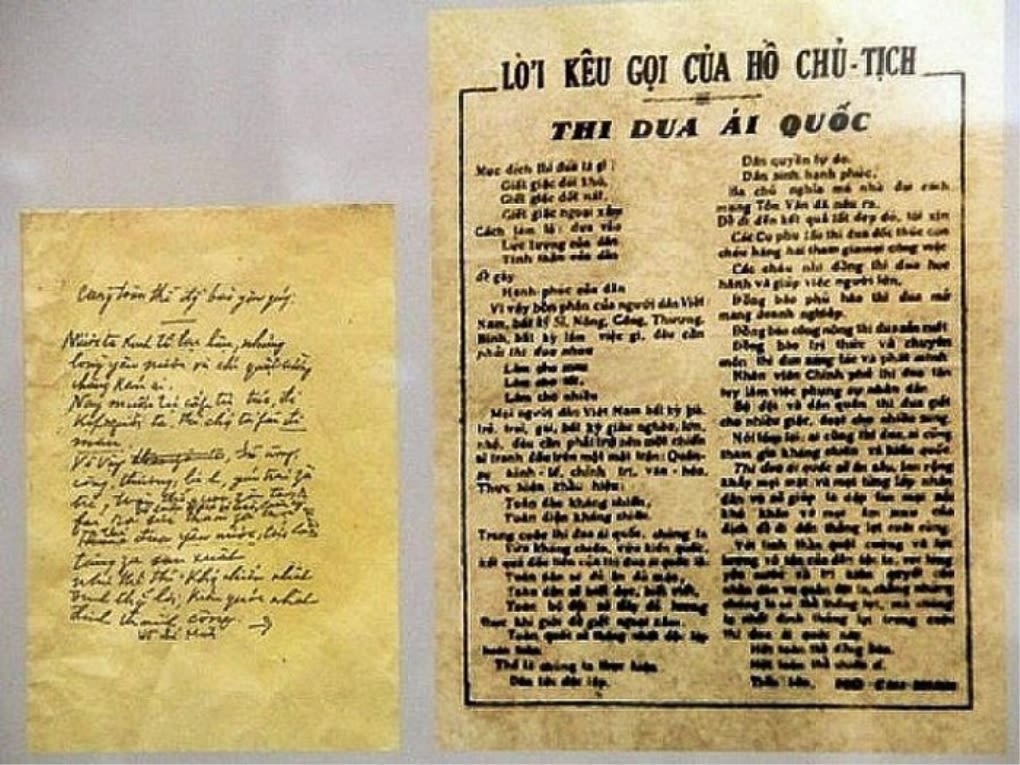 Cùng toàn thể đồng bào yêu quý.
Nước ta kinh tế lạc hậu, nhưng
lòng yêu nước và chí quật cường
chẳng kém ai.
Nay muốn
Vì vậy
công, thương, binh, gái trai già
trẻ,
yêu nước,
tăng gia sản xuất
Như thế thì kháng chiến nhất
định thắng lợi, kiến quốc nhất
định thành công.
Hồ Chí Minh
LỜI KÊU GỌI CỦA HỒ CHỦ-TỊCH
THI DUA ÁI QUỐC
Mục đích thi đua là gì ?
Giết giặc đói khổ,
Giết giặc dốt nát,
Giết giặc ngoại xâm
Cách làm là : dựa vào
Lực lượng của dân
Tinh thần của dân
để gây
Hạnh phúc của dân
Vì vậy bổn phận của người dân Việt
Nam, bất kỳ Sĩ, Nông, Công, Thương,
Binh, bất kỳ làm việc gì, đều cần
phải thi đua nhau
Làm cho mau
Làm cho tốt,
Làm cho nhiều
Mọi người dân Việt Nam bất kỳ già,
trẻ, trai, gái, bất kỳ giàu nghèo, lớn,
nhỏ, đều cần phải trở nên một chiến
sĩ tranh đấu trên mặt trận : Quân-
sự, kinh-tế, chính trị, văn-hóa.
Thực hiện khẩu hiệu :
Toàn dân kháng chiến,
Toàn diện kháng chiến.
Trong cuộc thi đua ái quốc, chúng ta
Vừa kháng chiến, vừa kiến quốc,
kết quả đầu tiên của thi đua ái quốc là.
Toàn dân sẽ đủ ăn đủ mặc,
Toàn dân sẽ biết đọc, biết viết,
Toàn bộ đội sẽ đầy đủ lương
thực khí giới để giết ngoại xâm.
Toàn quốc sẽ thống nhất độc lập
hoàn toàn.
Thế là chúng ta thực hiện
Dân tộc độc lập.
Dân quyền tự do.
Dân sinh hạnh phúc.
Ba chủ nghĩa mà nhà đại cách
mạng Tôn Văn đã nêu ra.
Để đi đến kết quả tốt đẹp đó, tôi xin
Các Cụ phụ lão thi đua đốc thúc con
cháu hăng hái tham gia mọi công việc
Các cháu nhi đồng thi đua học
hành và giúp việc người lớn.
Đồng bào phú hào thi đua mở
mang doanh nghiệp.
Đồng bào công nông thi đua sản xuất
Đồng bào trí thức và chuyên
môn thi đua sáng tác và phát minh
Nhân viên Chính phủ thi đua tận
tụy làm việc phụng sự nhân dân
Bộ đội và dân quân thi đua giết
cho nhiều giặc, đoạt cho nhiều súng.
Nói tóm lại : ai cũng thi đua, ai cũng
tham gia kháng chiến và kiến quốc.
Thi đua ái quốc sẽ ăn sâu, lan rộng
khắp mọi mặt và mọi từng lớp nhân
dân và sẽ giúp ta dập tan mọi nỗi
khó khăn và mọi âm mưu của
địch để đi đến thắng lợi cuối cùng.
Với tinh thần quật cường và lực
lượng vô tận của dân tộc ta, với lòng
yêu nước và trí kiên quyết của
nhân dân và quân đội ta, chẳng những
chúng ta có thể thắng lợi, mà chúng
ta nhất định thắng lợi trong cuộc
thi đua ái quốc này
Hỡi toàn thể đồng bào.
Hỡi toàn thể chiến sĩ.
Tiến lên. HỒ CHÍ MINH